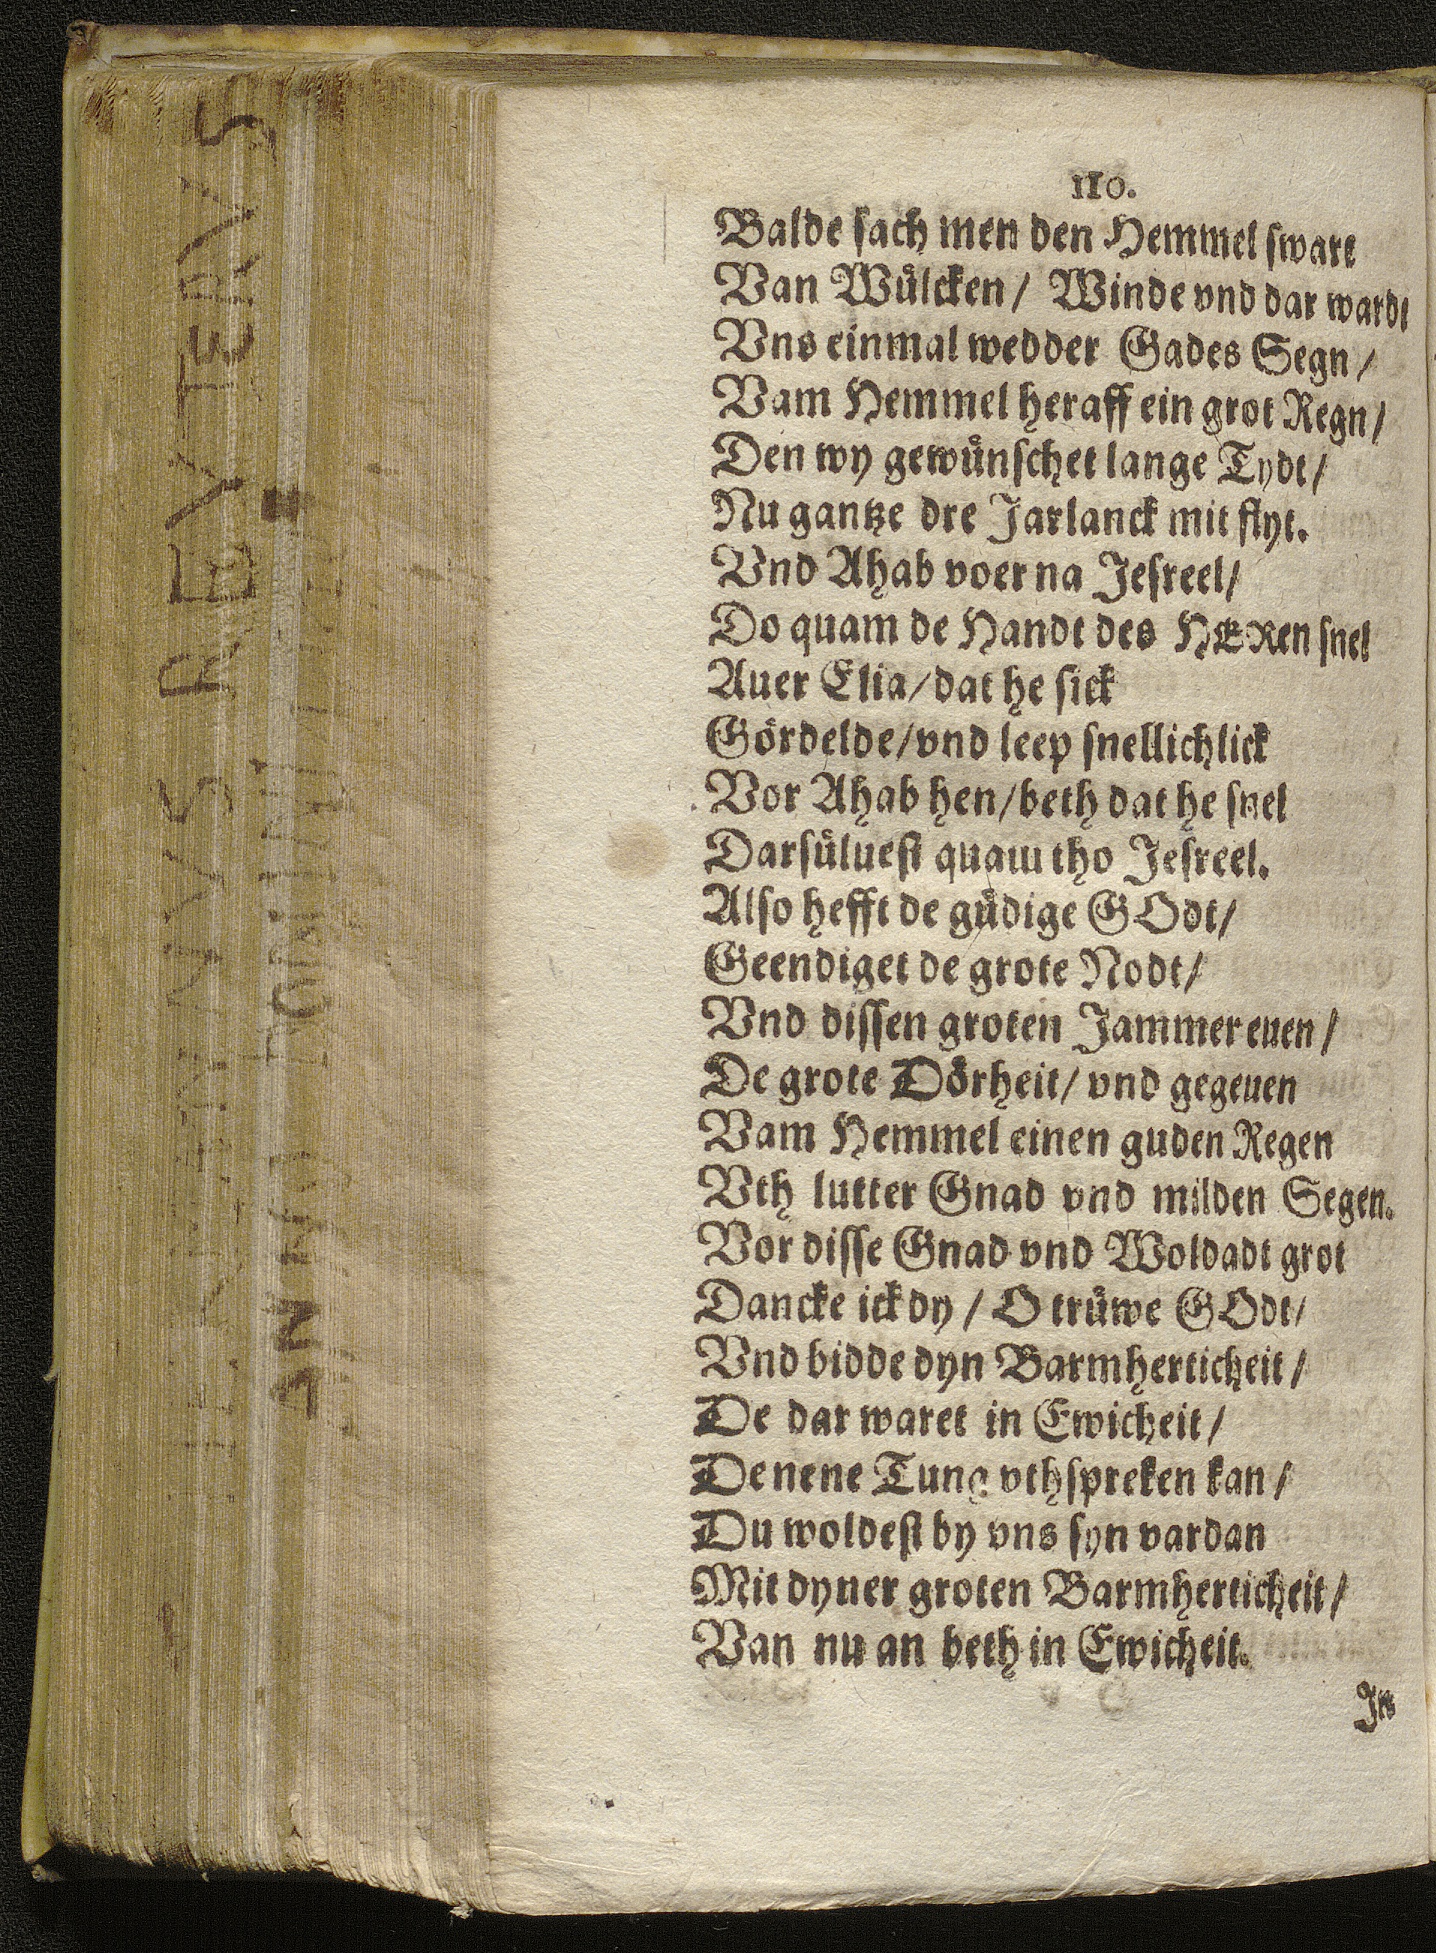 110.
Balde sach men den Hemmel swart
Van Wuͤlcken / Winde vnd dar wardt
Vns einmal wedder Gades Segn /
Vam Hemmel heraff ein grot Regn /
Den wy gewuͤnschet lange Tydt /
Nu gantze dre Jarlanck mit flyt.
Vnd Ahab voer na Jesreel /
Do quam de Handt des HERen snel
Auer Elia / dat he sick
Goͤrdelde / vnd leep snellichlick
Vor Ahab hen / beth dat he snel
Darsuͤluest quam tho Jesreel.
Also hefft de guͤdige GOdt /
Geendiget de grote Nodt /
Vnd dissen groten Jammer euen /
De grote Doͤrheit / vnd gegeuen
Vam Hemmel einen guden Regen
Vth lutter Gnad vnd milden Segen.
Vor disse Gnad vnd Woldadt grot
Dancke ick dy / O truͤwe GOdt /
Vnd bidde dyn Barmherticheit /
De dar waret in Ewicheit /
De nene Tung vthspreken kan /
Du woldest by vns syn vardan
Mit dyner groten Barmherticheit /
Van nu an beth in Ewicheit.
REVTERVS
ANNO